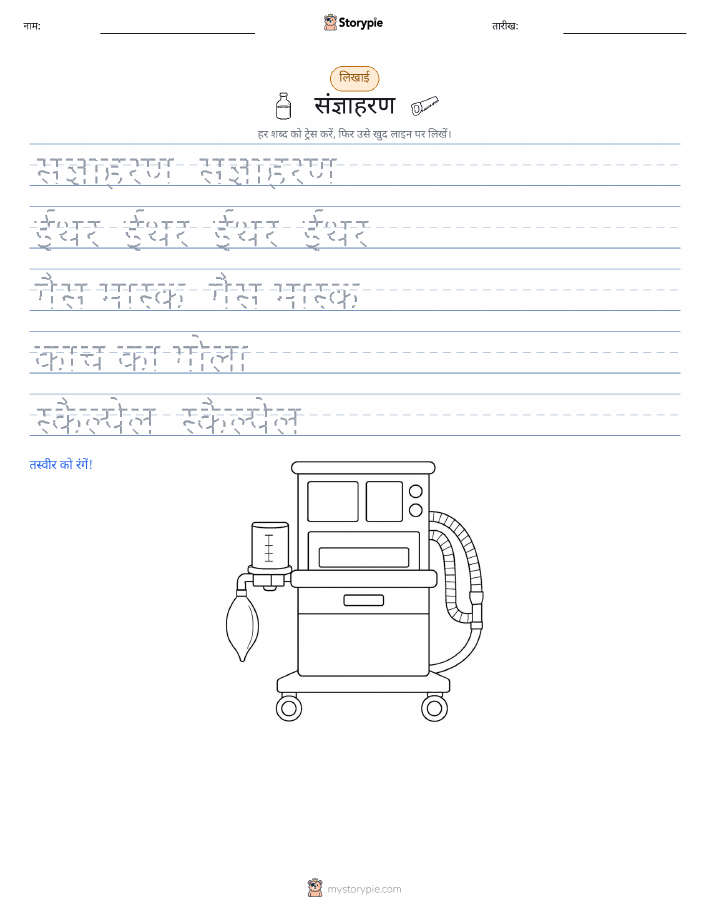 नाम:
Storypie
तारीख:
लिखाई
संज्ञाहरण
हर शब्द को ट्रेस करें, फिर उसे खुद लाइन पर लिखें।
संज्ञाहरण संज्ञाहरण
ईथर ईथर ईथर ईथर
गैस मास्क गैस मास्क
काच का गोला
स्कैल्पेल स्कैल्पेल
तस्वीर को रंगें!
mystorypie.com